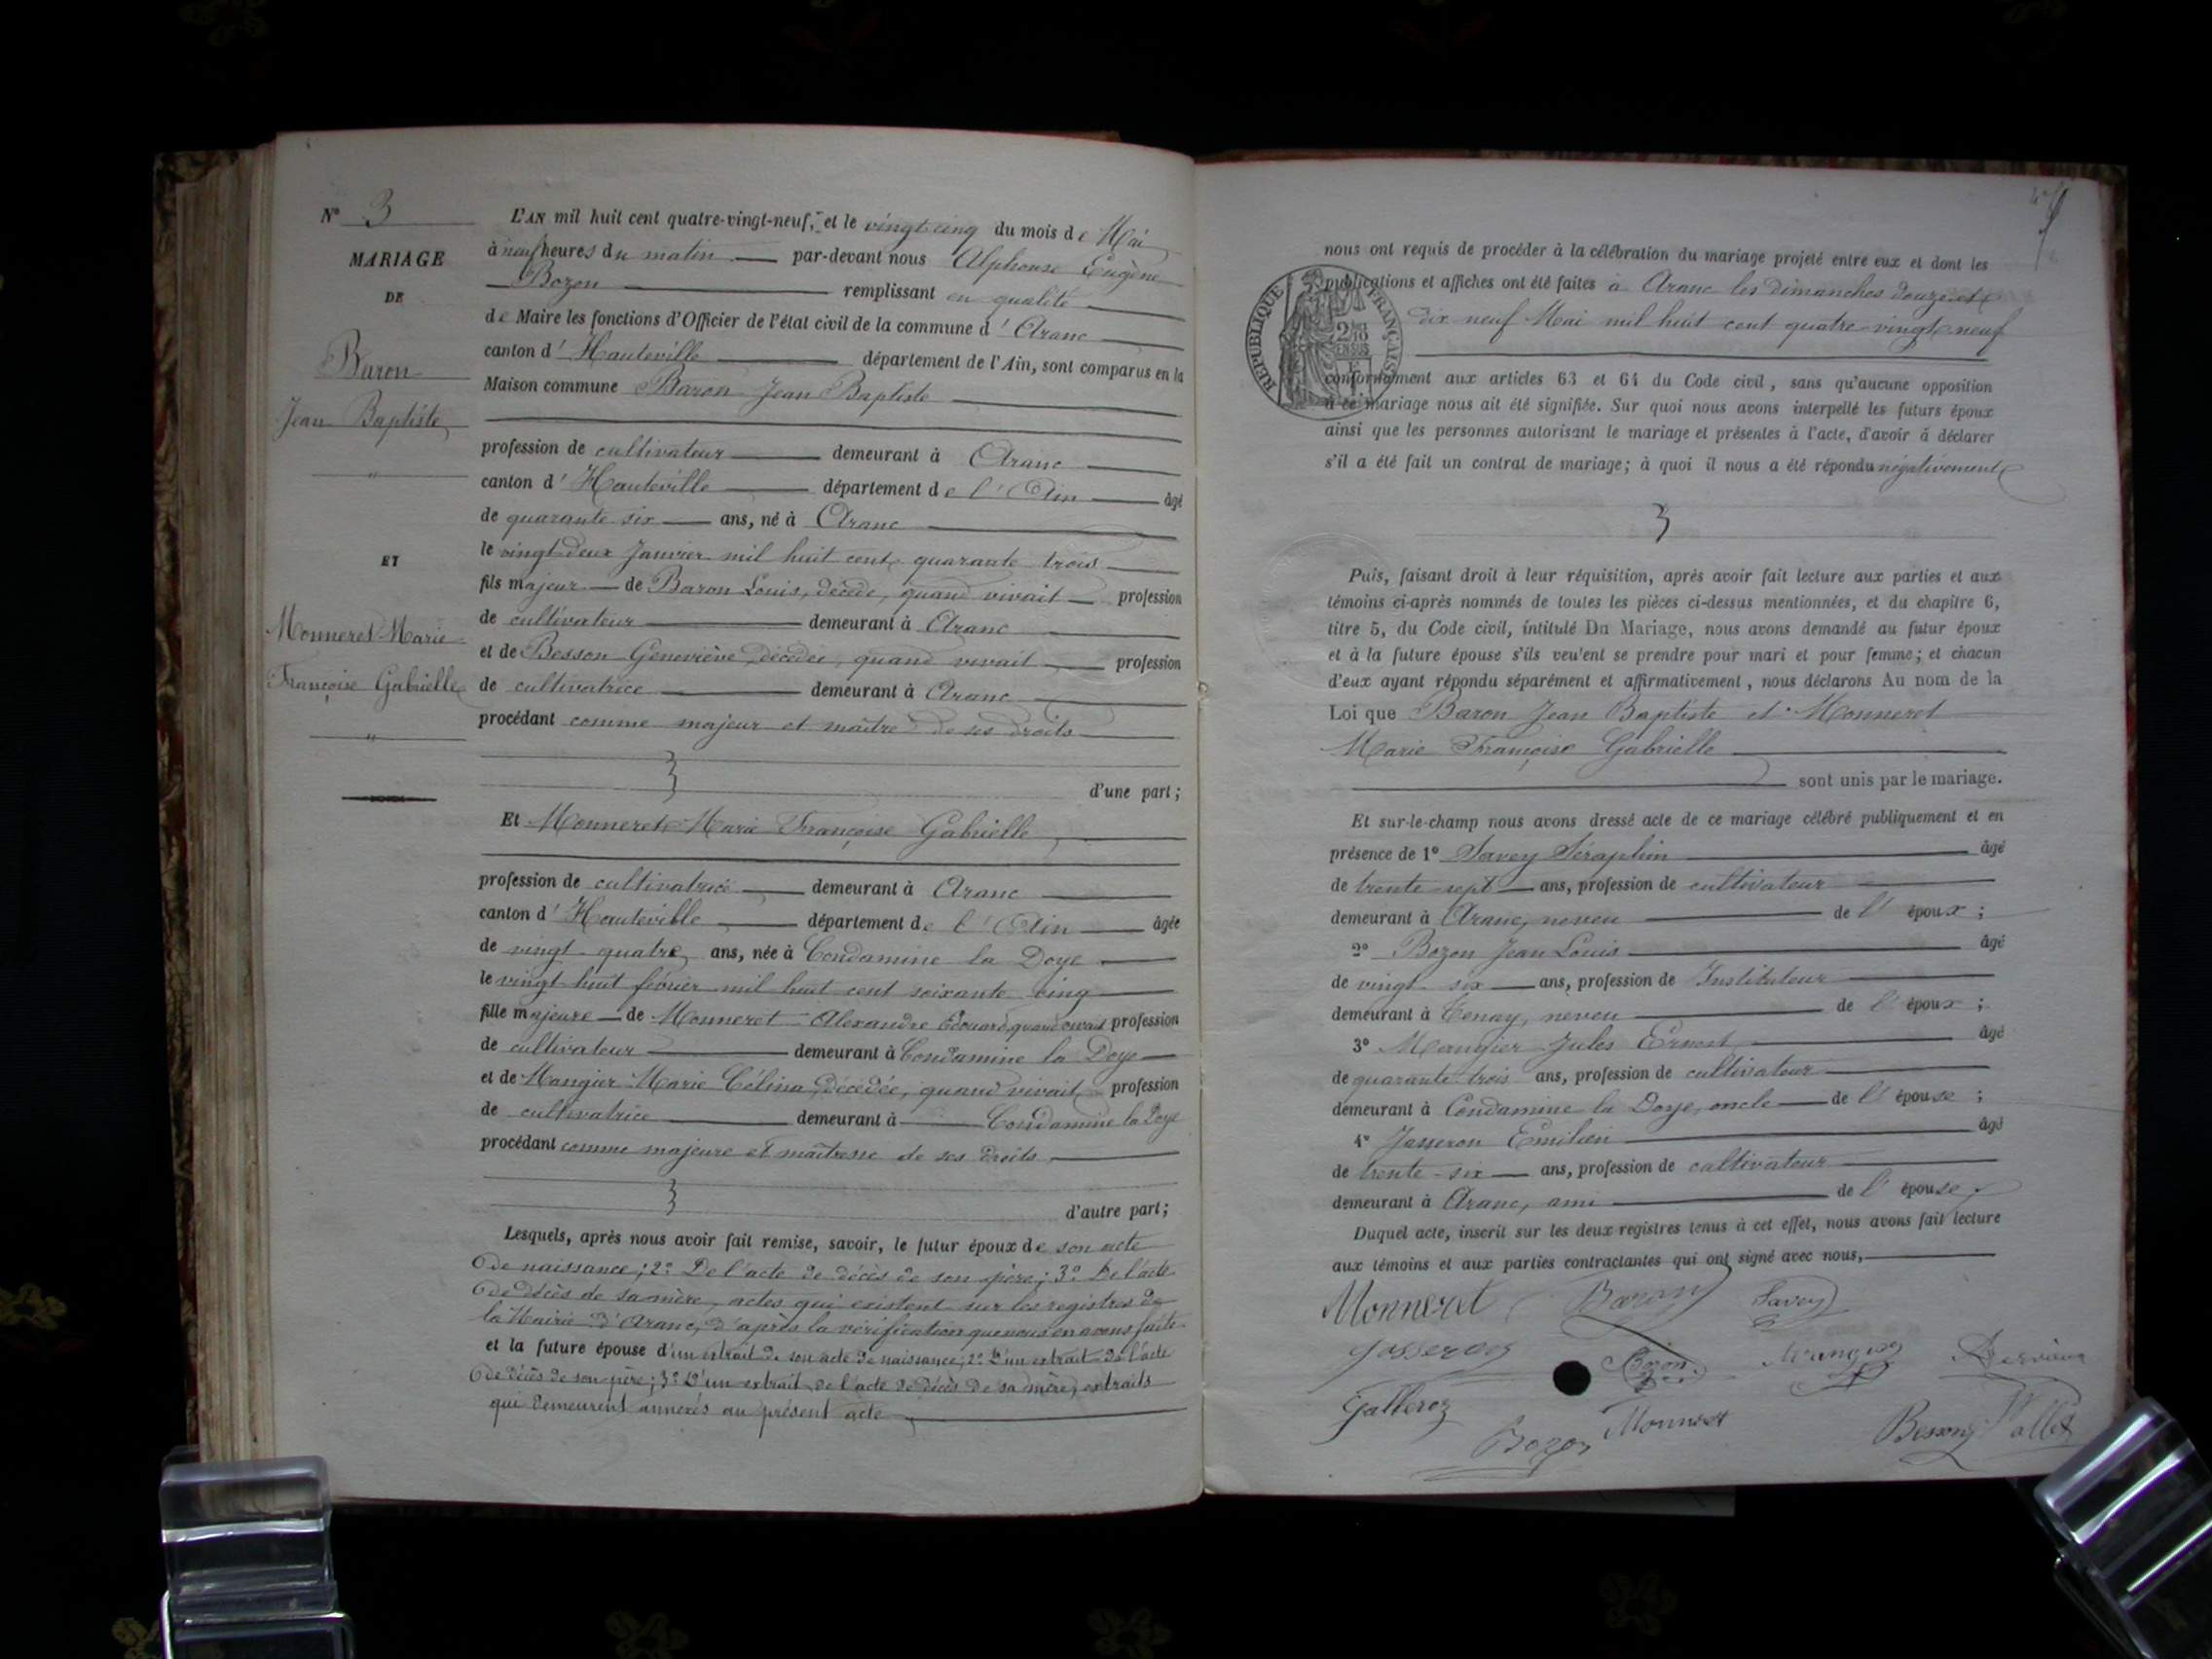 N° 3
MARIAGE
DE
Baron
Jean Baptiste
"
ET
Monneret Marie
Françoise Gabrielle
"
L'AN mil huit cent quatre-vingt-neuf, et le vingt cinq du mois de Mai
à neuf heures du matin par-devant nous Alphonse Eugène
Bozon remplissant en qualité
de Maire les fonctions d'Officier de l'état civil de la commune d' Aranc
canton d' Hauteville département de l'Ain, sont comparus en la
Maison commune Baron Jean Baptiste
profession de cultivateur demeurant à Aranc
canton d' Hauteville département de l'Ain âgé
de quarante six ans, né à Aranc
le vingt deux Janvier mil huit cent quarante trois
fils majeur de Baron Louis, décédé, quand vivait profession
de cultivateur demeurant à Aranc
et de Besson Geneviève, décédée, quand vivait profession
de cultivatrice demeurant à Aranc
procédant comme majeur et maître de ses droits
d'une part;
Et Monneret Marie Françoise Gabrielle
profession de cultivatrice demeurant à Aranc
canton d' Hauteville département de l'Ain âgée
de vingt quatre ans, née à Condamine la Doye
le vingt huit février mil huit cent soixante cinq
fille majeure de Monneret Alexandre Edouard, quand vivait profession
de cultivateur demeurant à Condamine la Doye
et de Mangier Marie Célina, décédée, quand vivait profession
de cultivatrice demeurant à Condamine la Doye
procédant comme majeure et maîtresse de ses droits
d'autre part;
Lesquels, après nous avoir fait remise, savoir, le futur époux de son acte
de naissance; 2° De l'acte de décès de son père; 3° De l'acte
de décès de sa mère, actes qui existent sur les registres de
la Mairie d'Aranc, d'après la vérification que nous en avons faite
et la future épouse d'un extrait de son acte de naissance; 2° D'un extrait de l'acte
de décès de son père; 3° D'un extrait de l'acte de décès de sa mère, extraits
qui demeurent annexés au présent acte
nous ont requis de procéder à la célébration du mariage projeté entre eux et dont les
publications et affiches ont été faites à Aranc les dimanches douze et
dix neuf Mai mil huit cent quatre-vingt-neuf
RÉPUBLIQUE FRANÇAISE
conformément aux articles 63 et 64 du Code civil, sans qu'aucune opposition
à ce mariage nous ait été signifiée. Sur quoi nous avons interpellé les futurs époux
ainsi que les personnes autorisant le mariage et présentes à l'acte, d'avoir à déclarer
s'il a été fait un contrat de mariage; à quoi il nous a été répondu négativement
Puis, faisant droit à leur réquisition, après avoir fait lecture aux parties et aux
témoins ci-après nommés de toutes les pièces ci-dessus mentionnées, et du chapitre 6,
titre 5, du Code civil, intitulé Du Mariage, nous avons demandé au futur époux
et à la future épouse s'ils veulent se prendre pour mari et pour femme; et chacun
d'eux ayant répondu séparément et affirmativement, nous déclarons Au nom de la
Loi que Baron Jean Baptiste et Monneret
Marie Françoise Gabrielle
sont unis par le mariage.
Et sur-le-champ nous avons dressé acte de ce mariage célébré publiquement et en
présence de 1° Savey Séraphin âgé
de trente sept ans, profession de cultivateur
demeurant à Aranc, neveu de l'époux;
2° Bozon Jean Louis âgé
de vingt six ans, profession de Instituteur
demeurant à Tenay, neveu de l'époux;
3° Mangier Jules Ernest âgé
de quarante trois ans, profession de cultivateur
demeurant à Condamine la Doye, oncle de l'épouse;
4° Jasseron Emilien âgé
de trente-six ans, profession de cultivateur
demeurant à Aranc, ami de l'épouse;
Duquel acte, inscrit sur les deux registres tenus à cet effet, nous avons fait lecture
aux témoins et aux parties contractantes qui ont signé avec nous,
Monneret Baron Savey
Jasseron Bozon Mangier
Bozon Monneret Besson